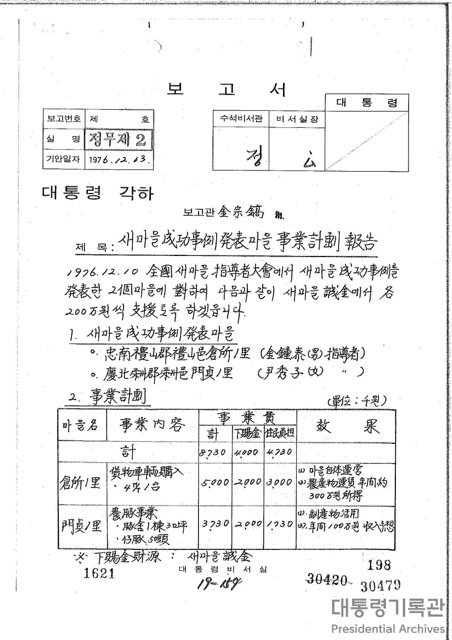 보 고 서
보고번호 제 호
실 명 정무제2
기안일자 1976.12.13.
수석비서관 비서실장 대 통 령
대통령 각하
보고관 金宗鎬
제 목: 새마을成功事例發表마을 事業計劃 報告
1976.12.10 全國 새마을 指導者大會에서 새마을成功事例를
發表한 2個마을에 對하여 다음과 같이 새마을 誠金에서 各
200万원씩 支援토록 하겠읍니다.
1. 새마을成功事例發表마을
○. 忠南禮山郡禮山邑倉所1里 (金鍾泰(男)指導者)
○. 慶北 郡 邑 門貞1里 (尹秀子(女) 〃 )
2. 事業計劃 (單位: 千원)
마을名 事業內容 事業費 效 果
計 下賜金 住民負担
計 8,730 4,000 4,730
倉所1里 貨物車輛購入 5,000 2,000 3,000
· 4톤 1台
① 마을自体運営
② 農産物運賃 年間 約
300万원 所得
門貞1里 養豚事業 3,730 2,000 1,730
· 豚舍 1棟 30坪
· 仔豚 50頭
① 副産物活用
② 年間 100万원 收入予想
※ 下賜金財源 : 새마을 誠金
1621 대 통 령 비 서 실 198
19-154 30420 30479
대통령기록관
Presidential Archives